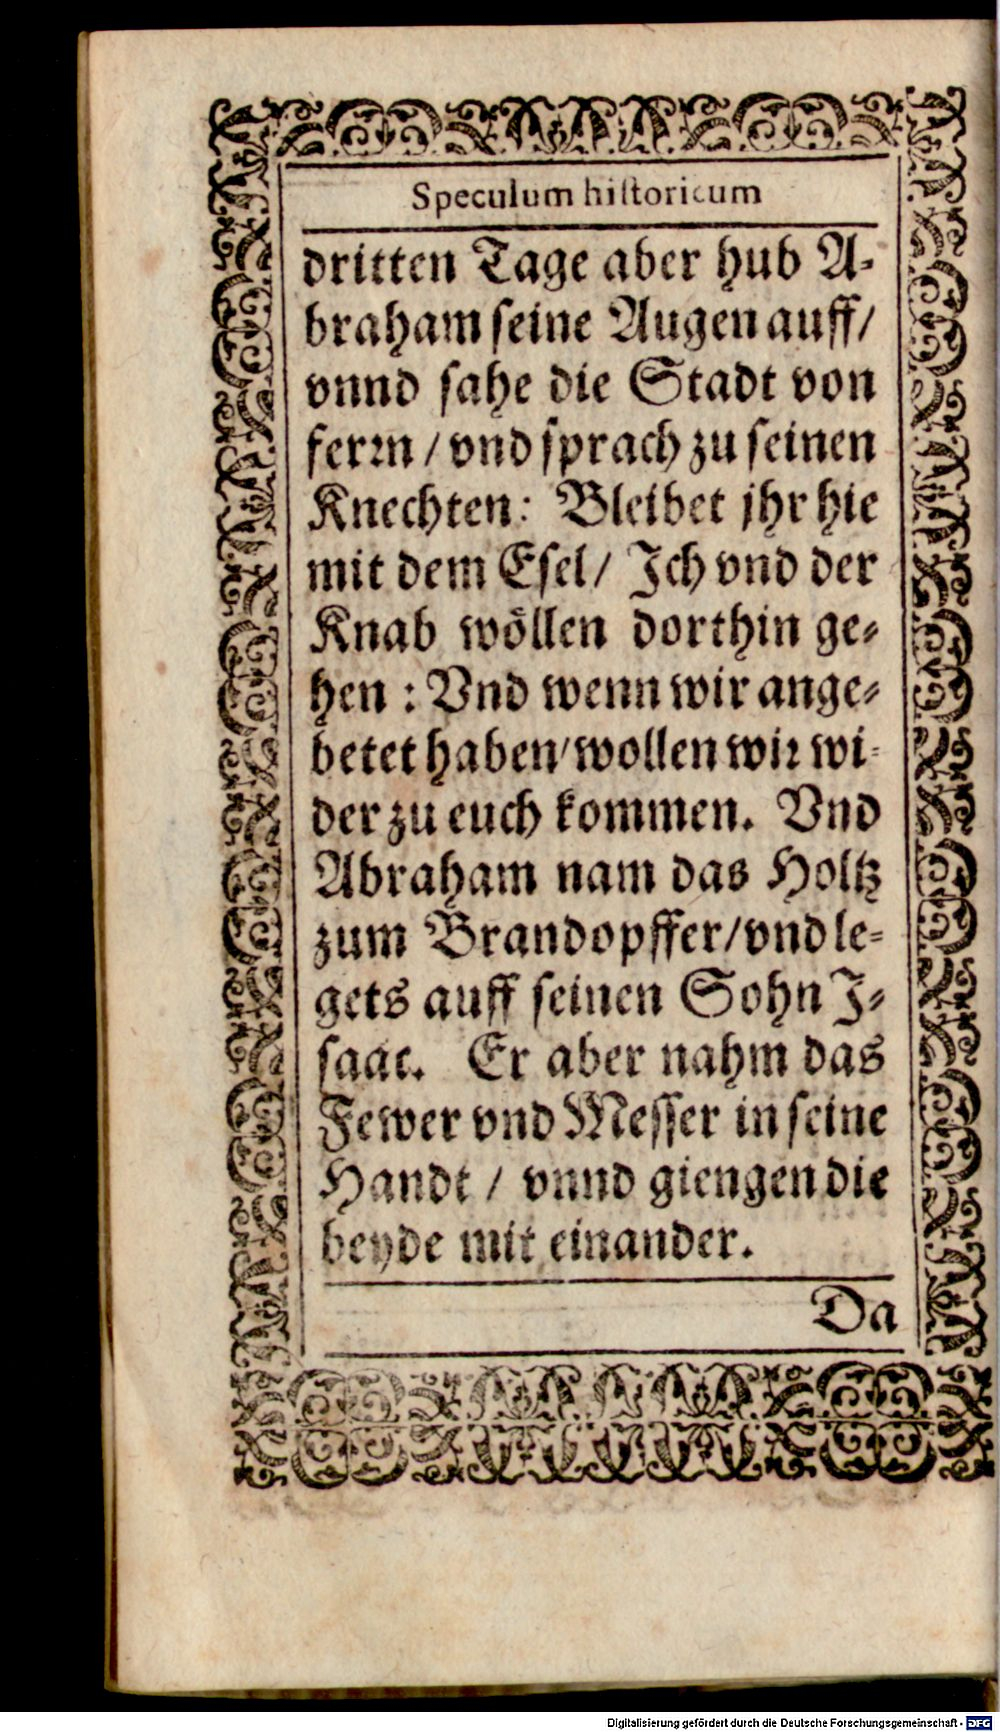 Speculum historicum
dritten Tage aber hub A-
braham seine Augen auff/
vnnd sahe die Stadt von
ferꝛn / vnd sprach zu seinen
Knechten: Bleibet jhr hie
mit dem Esel/ Ich vnd der
Knab wöllen dorthin ge-
hen : Vnd wenn wir ange-
betet haben/ wollen wiꝛ wi-
der zu euch kommen. Vnd
Abraham nam das Holtz
zum Brandopffer/vnd le-
gets auff seinen Sohn I-
saac. Er aber nahm das
Fewer vnd Messer in seine
Handt / vnnd giengen die
beyde mit einander.
Da
Digitalisierung gefördert durch die Deutsche Forschungsgemeinschaft - DFG